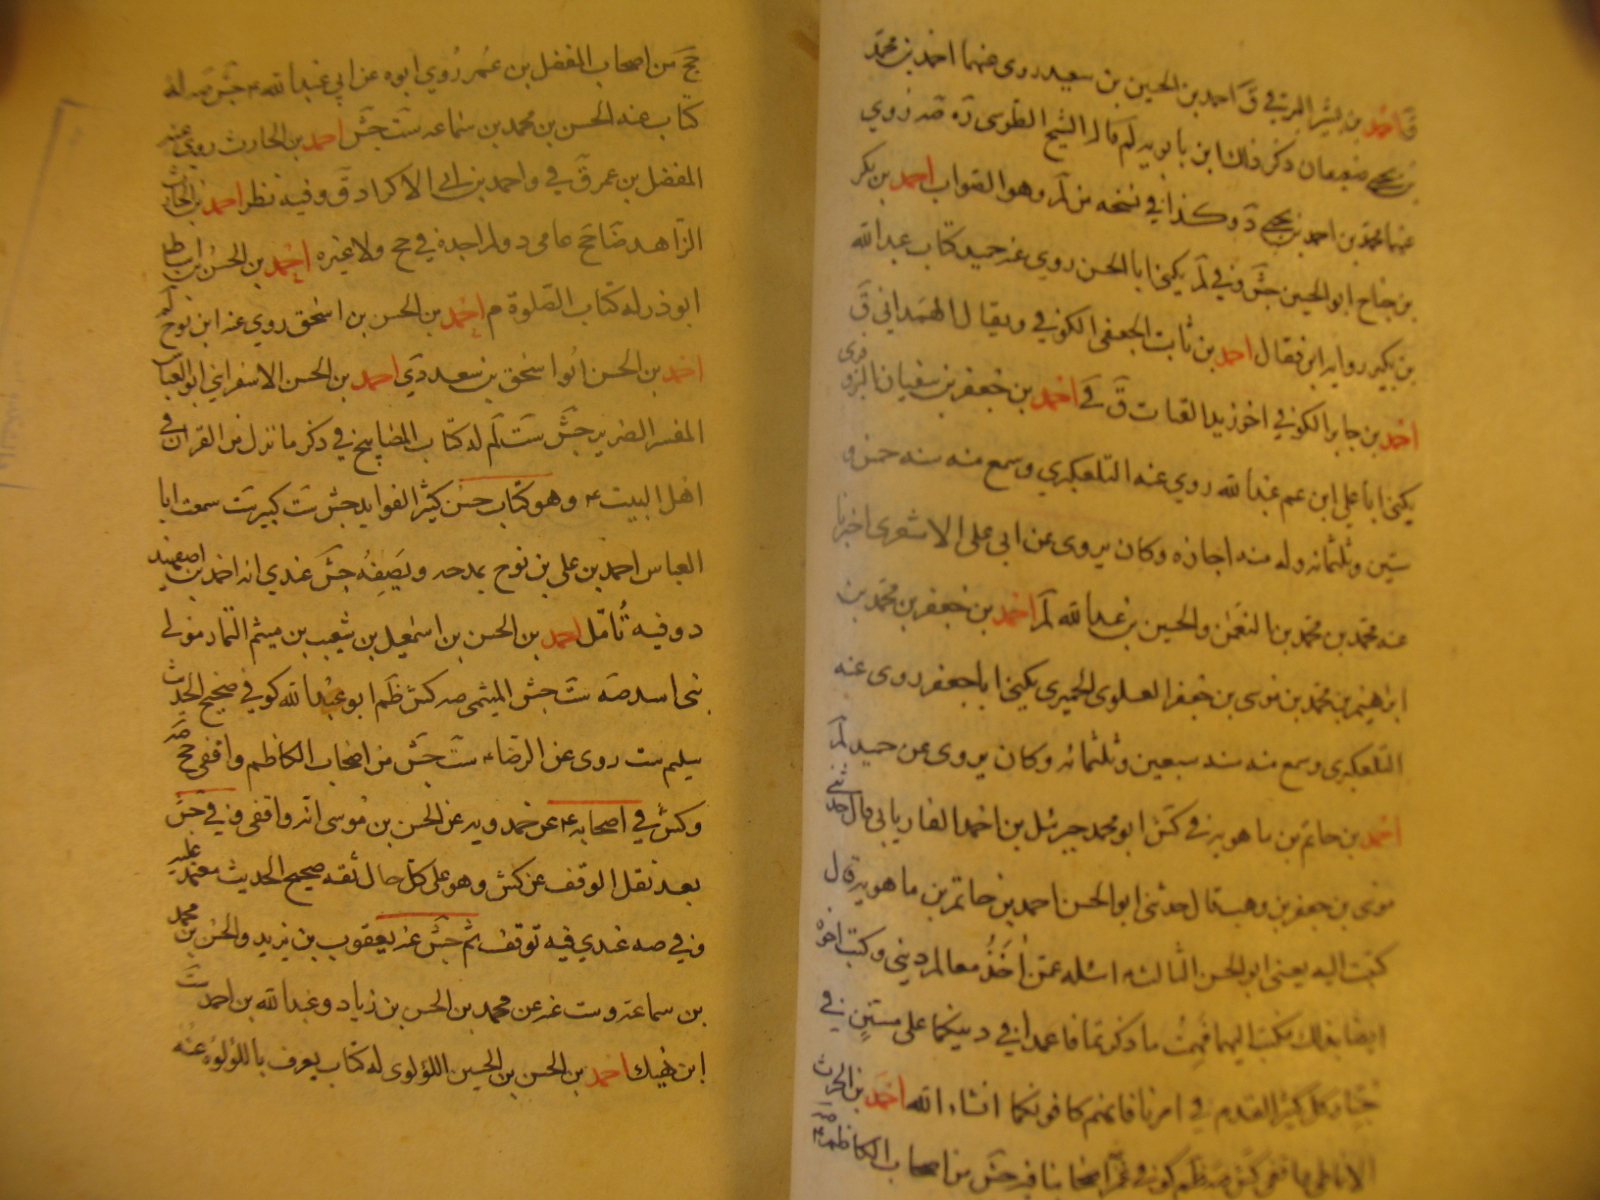 ق احمد بن بشر المرقي ق احمد بن الحسين بن سعيد روى عنهما احمد بن محمد
بن يحيى ضعيفان ذكر ذلك ابن بابويه لم قال الشيخ الطوسي ره صه د وروي
عنهما محمد بن احمد بن يحيى د وكذا في نسخه من لم وهو الصواب احمد بن بكر
بن جناح ابو الحسين جش وفي لم يكنى ابا الحسن روي عنه حميد كتاب عبد الله
بن بكير روايه ابن فضال احمد بن ثابت الجعفي الكوفي ويقال الهمداني ق
احمد بن جابر الكوفي اخو زيد القتات ق احمد بن جعفر بن سفيان البزوفري
يكنى ابا علي ابن عم عبد الله روي عنه التلعكبري وسمع منه سنه خمس و
ستين وثلثمائه وله منه اجازه وكان يروى عن ابي علي الاشعري اخبرنا
عنه محمد بن محمد بن النعمن والحسين بن عبد الله لم احمد بن جعفر بن محمد بن
ابراهيم بن محمد بن موسى بن جعفر العلوي الحميري يكنى ابا جعفر روى عنه
التلعكبري وسمع منه سنه سبعين وثلثمائه وكان يروى عن حميد لم
احمد بن حاتم بن ماهويه في كش ابو محمد جبرئيل بن احمد الفاريابي قال حدثني
موسى بن جعفر بن وهب قال حدثني ابو الحسن احمد بن حاتم بن ماهويه قال
كتبت اليه يعني ابو الحسن الثالث اسئله عمن اخذ معالم ديني وكتب اخوه
ايضا بذلك فكتب اليهما فهمت ما ذكرتما فاعمدا في دينكما على مسن في
حبنا وكل كثير القدم في امرنا فانهم كافوكما انشاء الله احمد بن الحرث
الانماطي واقفي كش صه ظم كوفي غمز اصحابنا فيه جش من اصحاب الكاظم
جخ من اصحاب المفضل بن عمر روي ابوه عن ابي عبد الله جش صه له
كتاب عنه الحسن بن محمد بن سماعه ست جش احمد بن الحارث روي عنه
المفضل بن عمر ق في واحمد بن ابي الاكراد ق وفيه نظر احمد بن الحارث
الزاهد ضا جخ عامي د ولم اجده في جخ ولا غيره احمد بن الحسن
ابو ذر له كتاب الصلوة م احمد بن الحسن بن اسحق روي عنه ابن نوح لم
احمد بن الحسن ابو اسحق بن سعد دي احمد بن الحسن الاسفرايني ابو العباس
المفسر الضرير جش ست لم له كتاب المصابيح في ذكر ما نزل من القران في
اهل البيت ع وهو كتاب حسن كثير الفوايد جش ست كبير ست سمعت ابا
العباس احمد بن علي بن نوح يمدحه ويصفه جش عندي انه احمد بن اصفهبد
د وفيه تامل احمد بن الحسن بن اسمعيل بن شعيب بن ميثم التمار مولى
بني اسد صه ست جش الميثمي صه كش ظم ابو عبد الله كوفي صحيح الحديث
سليم ست روى عن الرضا ع ست جش من اصحاب الكاظم واقفي جخ صه
وكش في اصحابه ع عن حمدويه عن الحسن بن موسى انه واقفي وفي جش
بعد نقل الوقف عن كش وهو على كل حال ثقه صحيح الحديث معتمد عليه
وفي صه عندي فيه توقف ثم جش عنه يعقوب بن يزيد والحسن بن محمد
بن سماعة وست عنه عن محمد بن الحسن بن زياد وعبد الله بن احمد ست
ابن نهيك احمد بن الحسن بن الحسين اللؤلوى له كتاب يعرف باللؤلؤه عنه